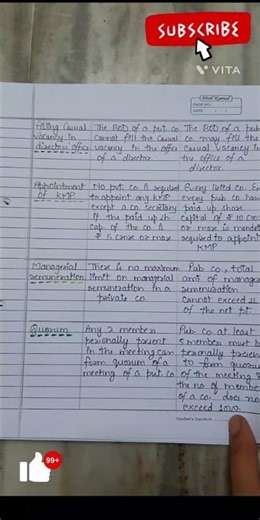 SUBSCRIBE
VITA
Filling Casual
vacancy in
directors office
The BOD of a pvt. co
cannot fill the casual
vacancy in the office
of a director.
The BOD of a pub
co may fill the
casual vacancy in
the office of a
director
Appointment
of KMP
No pvt co is required
to appoint any KMP
except a co secretary
if the paid up sh
cap. of the co is
₹ 5 crore or more
Every listed co. E
every pub co hav
paid up share
capital of ₹ 10 crore
or more is manda
required to appoint
KMP
Managerial
remuneration
There is no maximum
limit on managerial
remuneration in a
private co.
Pub co, total
amt of manager
remuneration
cannot exceed 11
of the net
Quorum
Any 2 member
personally present
in the meeting can
form quorum of a
meeting of a pvt co
Pub co at least
5 member must b
personally presen
to form quorum
of the meeting
the no of member
of a co. does no
exceed 1000
99+